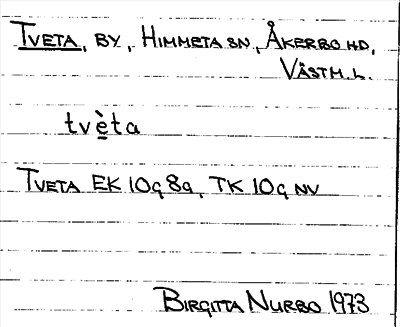 TVETA, BY, HIMMETA SN, ÅKERBO HD,
VÄSTM. L.
tvè̲ta
TVETA EK 10G 8a, TK 10G NV
BIRGITTA NURBO 1973